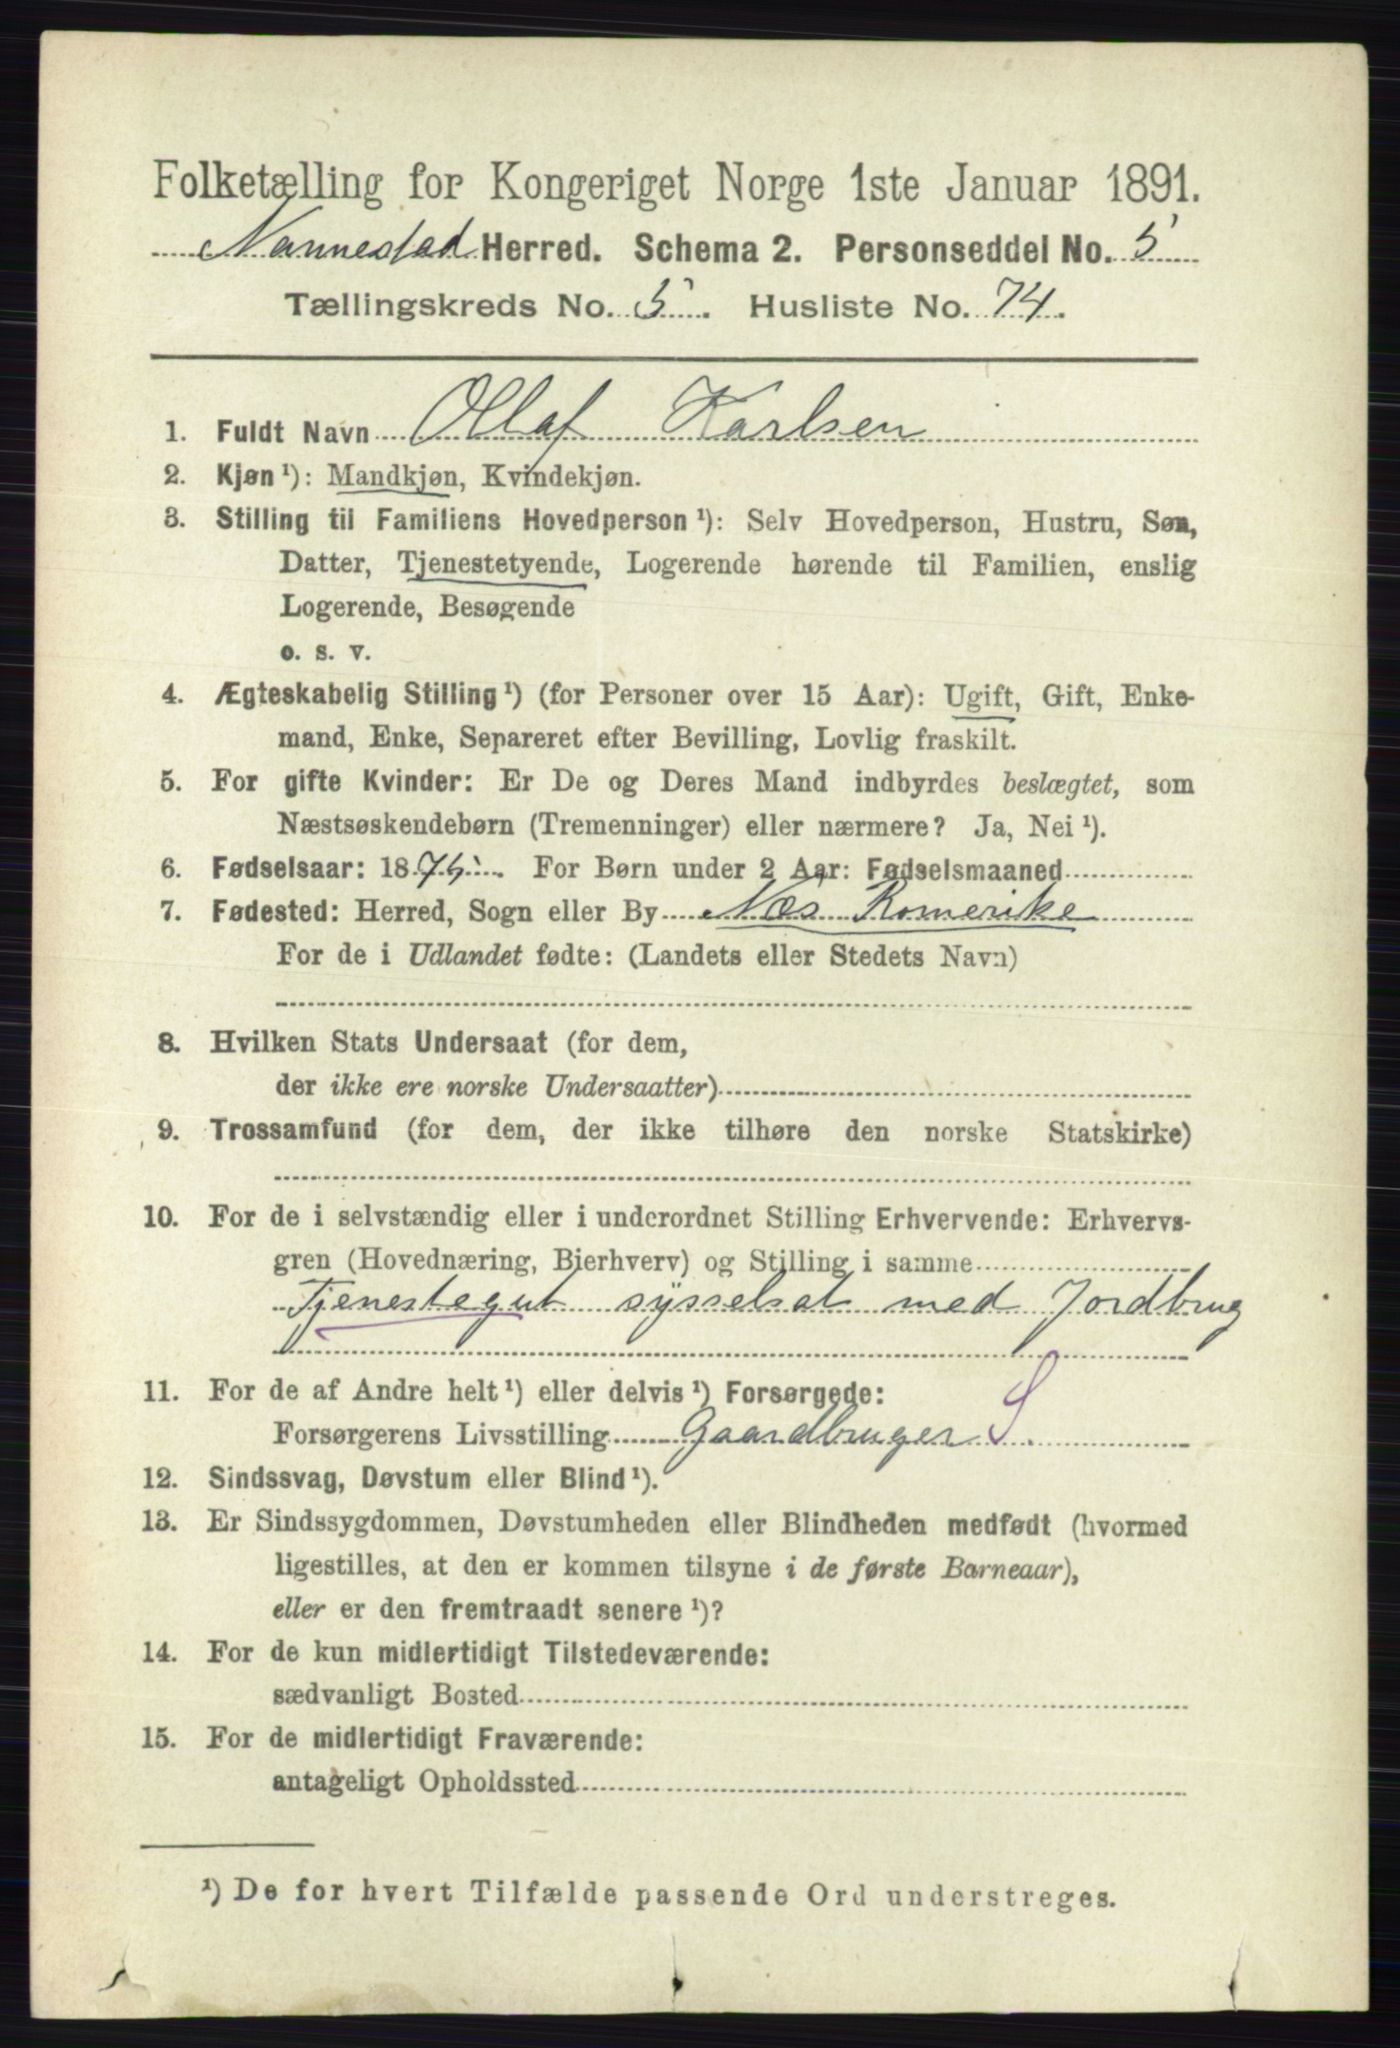 Folketælling for Kongeriget Norge 1ste Januar 1891.
Nannestad Herred. Schema 2. Personseddel No. 5
Tællingskreds No. 5. Husliste No. 74.
1. Fuldt Navn Ollaf Karlsen
2. Kjøn ¹): Mandkjøn, Kvindekjøn.
3. Stilling til Familiens Hovedperson ¹): Selv Hovedperson, Hustru, Søn,
Datter, Tjenestetyende, Logerende hørende til Familien, enslig
Logerende, Besøgende
o. s. v.
4. Ægteskabelig Stilling ¹) (for Personer over 15 Aar): Ugift, Gift, Enke-
mand, Enke, Separeret efter Bevilling, Lovlig fraskilt.
5. For gifte Kvinder: Er De og Deres Mand indbyrdes beslægtet, som
Næstsøskendebørn (Tremenninger) eller nærmere? Ja, Nei ¹).
6. Fødselsaar: 1875. For Børn under 2 Aar: Fødselsmaaned
7. Fødested: Herred, Sogn eller By Næs Romerike
For de i Udlandet fødte: (Landets eller Stedets Navn)
8. Hvilken Stats Undersaat (for dem,
der ikke ere norske Undersaatter)
9. Trossamfund (for dem, der ikke tilhøre den norske Statskirke)
10. For de i selvstændig eller i underordnet Stilling Erhvervende: Erhvervs-
gren (Hovednæring, Bierhverv) og Stilling i samme
Tjenestegut sysselsat med Jordbrug
11. For de af Andre helt ¹) eller delvis ¹) Forsørgede:
Forsørgerens Livsstilling Gaardbruger S.
12. Sindssvag, Døvstum eller Blind ¹).
13. Er Sindssygdommen, Døvstumheden eller Blindheden medfødt (hvormed
ligestilles, at den er kommen tilsyne i de første Barneaar),
eller er den fremtraadt senere ¹)?
14. For de kun midlertidigt Tilstedeværende:
sædvanligt Bosted
15. For de midlertidigt Fraværende:
antageligt Opholdssted
¹) De for hvert Tilfælde passende Ord understreges.